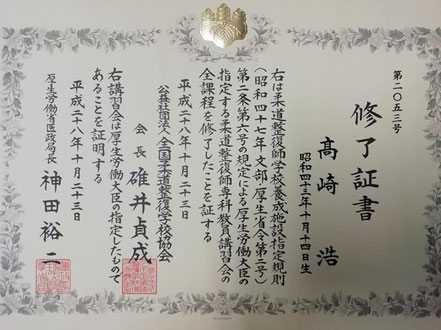 第二〇五三号
修了証書
髙崎 浩
昭和四十三年十月十四日生
右は柔道整復師学校養成施設指定規則
(昭和四十七年文部・厚生省令第二号)
第二条第六号の規定による厚生労働大臣の
指定する柔道整復師専科教員講習会の
全課程を修了したことを証する
平成二十八年十月二十三日
公益社団法人全国柔道整復学校協会
会長 碓井貞成
右講習会は厚生労働大臣の指定したもので
あることを証明する
平成二十八年十月二十三日
厚生労働省医政局長 神田裕二